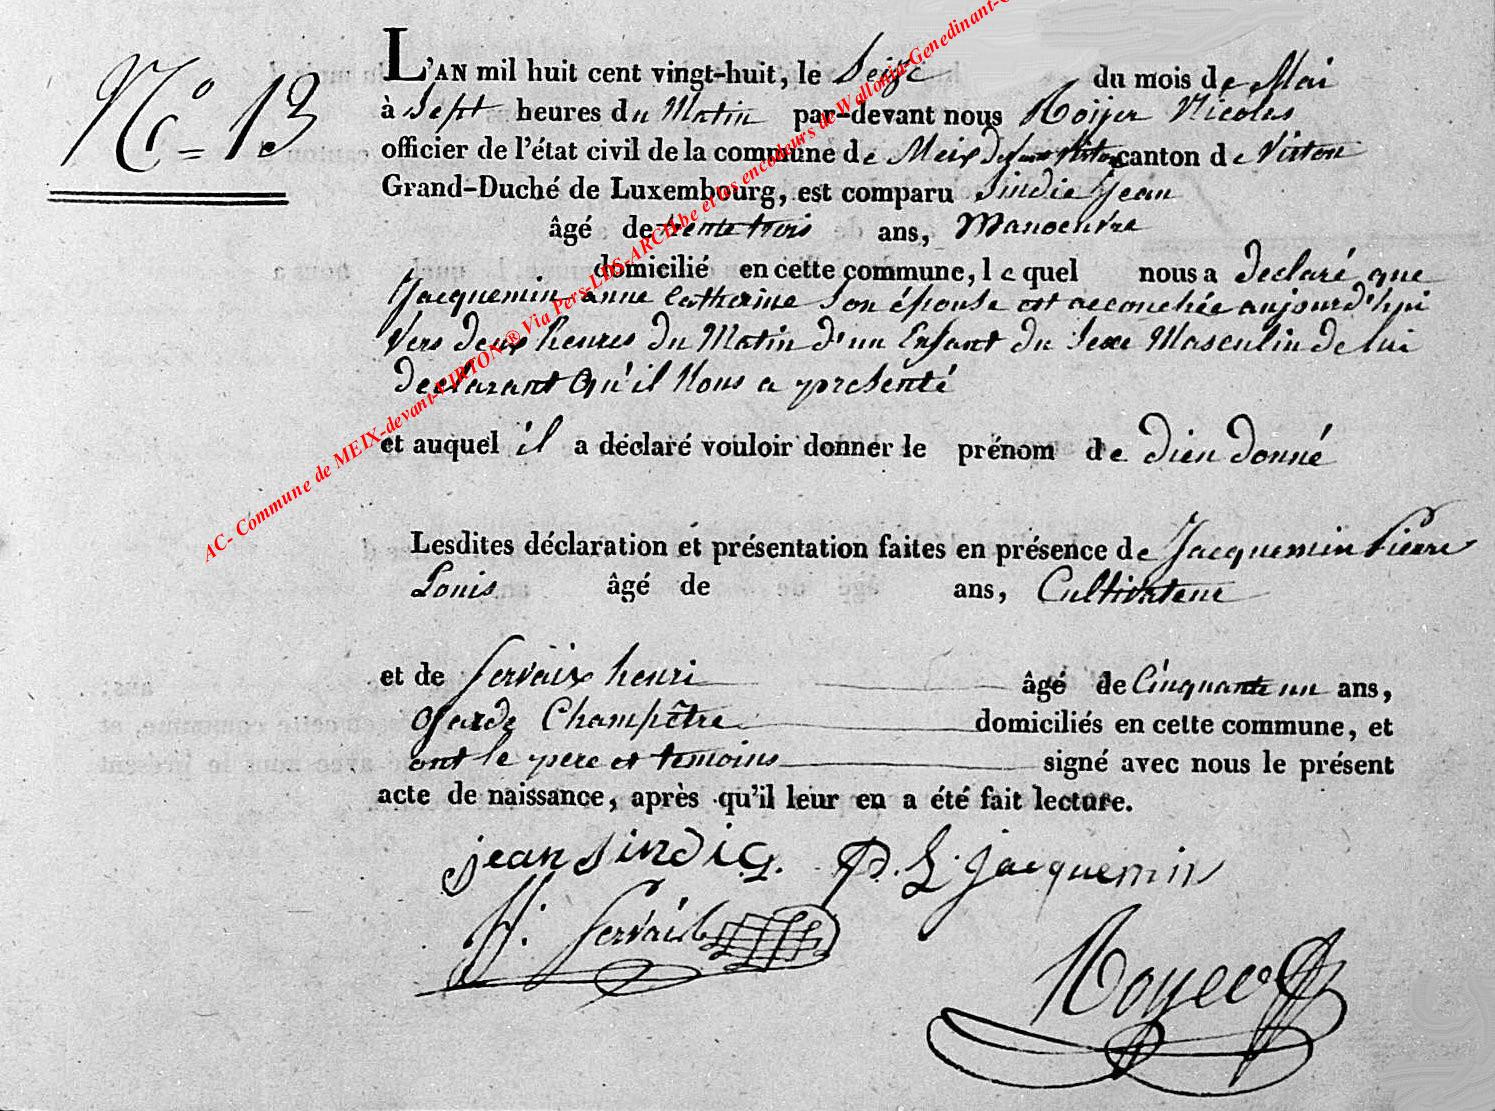 No 13
L'AN mil huit cent vingt-huit, le Seize du mois de Mai
à Sept heures du Matin par-devant nous Roÿer Nicolas
officier de l'état civil de la commune de Meix devant Virton canton de Virton
Grand-Duché de Luxembourg, est comparu Sindic Jean
âgé de trente trois ans, Manoeuvre
domicilié en cette commune, lequel nous a declaré que
Jacquemin anne Catherine Son épouse est accouchée aujourd'hui
Vers deux heures du Matin d'un Enfant du Sexe Masculin de lui
declarant Qu'il Nous a presenté
et auquel il a déclaré vouloir donner le prénom de dieu donné
Lesdites déclaration et présentation faites en présence de Jacquemin Pierre
Louis âgé de ans, Cultivateur
et de Servais henri âgé de Cinquante un ans,
Garde Champêtre domiciliés en cette commune, et
ont le pere et temoins signé avec nous le présent
acte de naissance, après qu'il leur en a été fait lecture.
jean Sindic. P. L. Jacquemin
H. Servais
Royer
AC- Commune de MEIX-devant-VIRTON ® Via Pers-LDS-ARCH.be et les encodeurs de Wallonia-Genedinant-